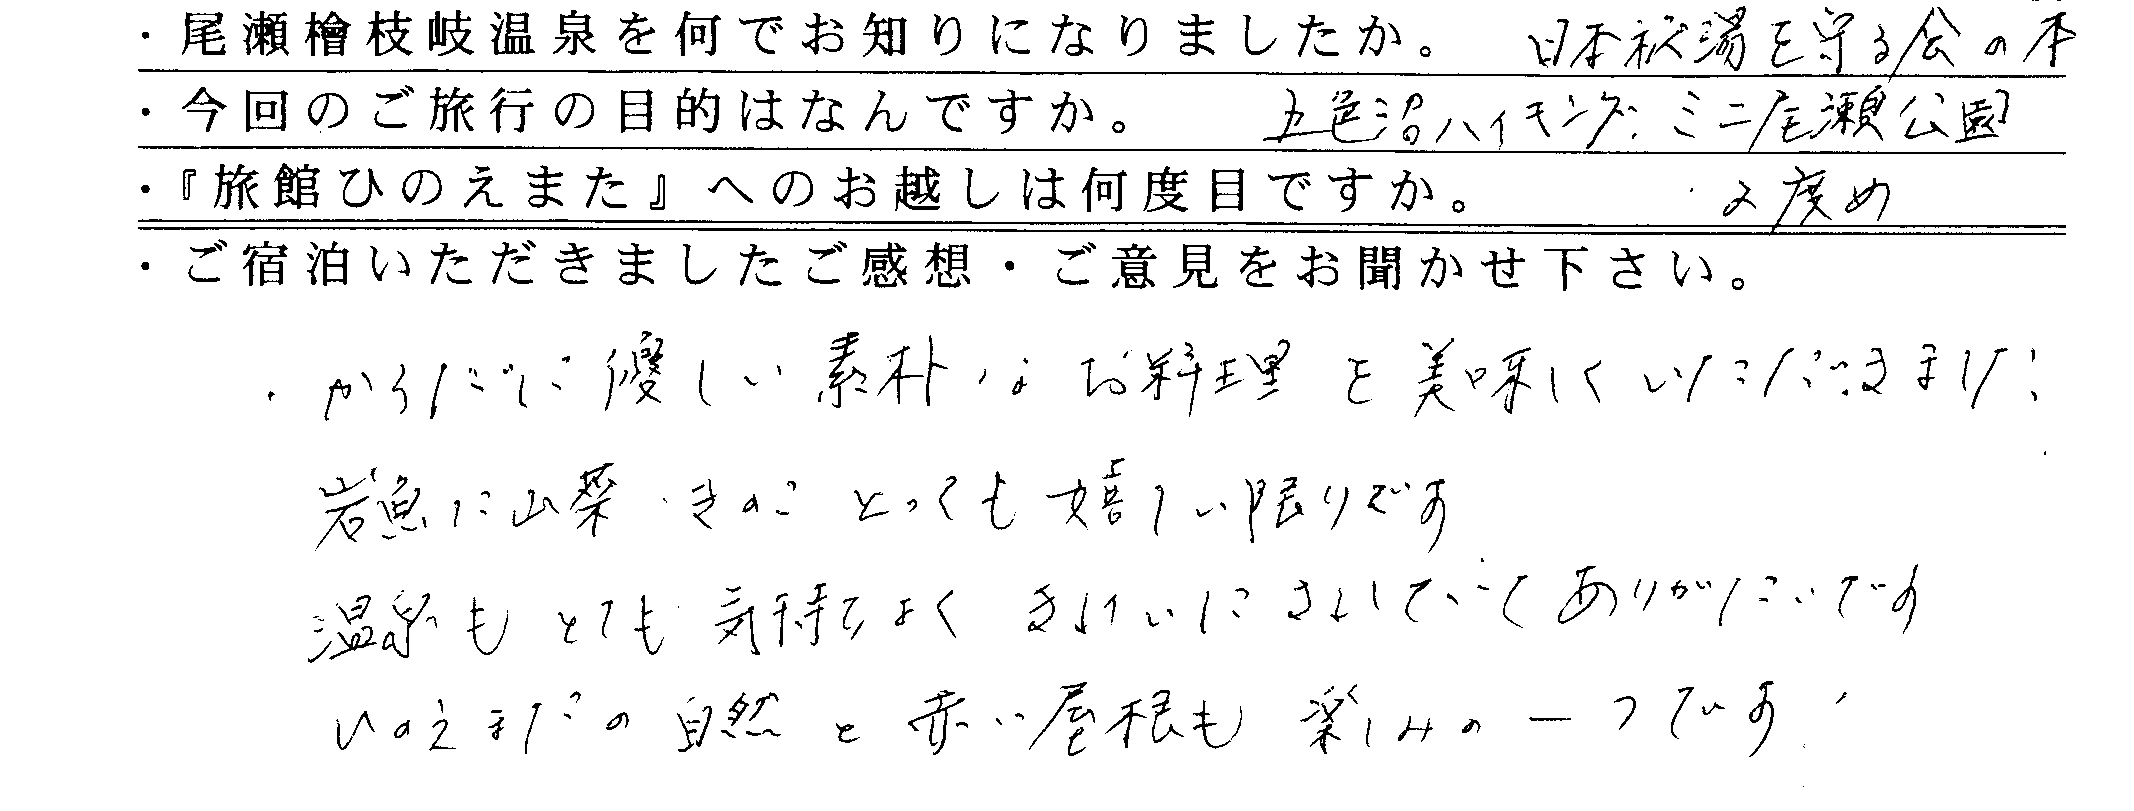 ・尾瀬檜枝岐温泉を何でお知りになりましたか。 日本秘湯を守る会の本
・今回のご旅行の目的はなんですか。 五色沼ハイキング、ミニ尾瀬公園
・『旅館ひのえまた』へのお越しは何度目ですか。 2度め
・ご宿泊いただきましたご感想・ご意見をお聞かせ下さい。
・からだに優しい素朴なお料理を美味しくいただきました。
岩魚に山菜・きのこ とっても嬉しい限りです
温泉もとても気持ちよく きれいにされていて ありがたいです
ひのえまたの自然と赤い屋根も楽しみの一つです。